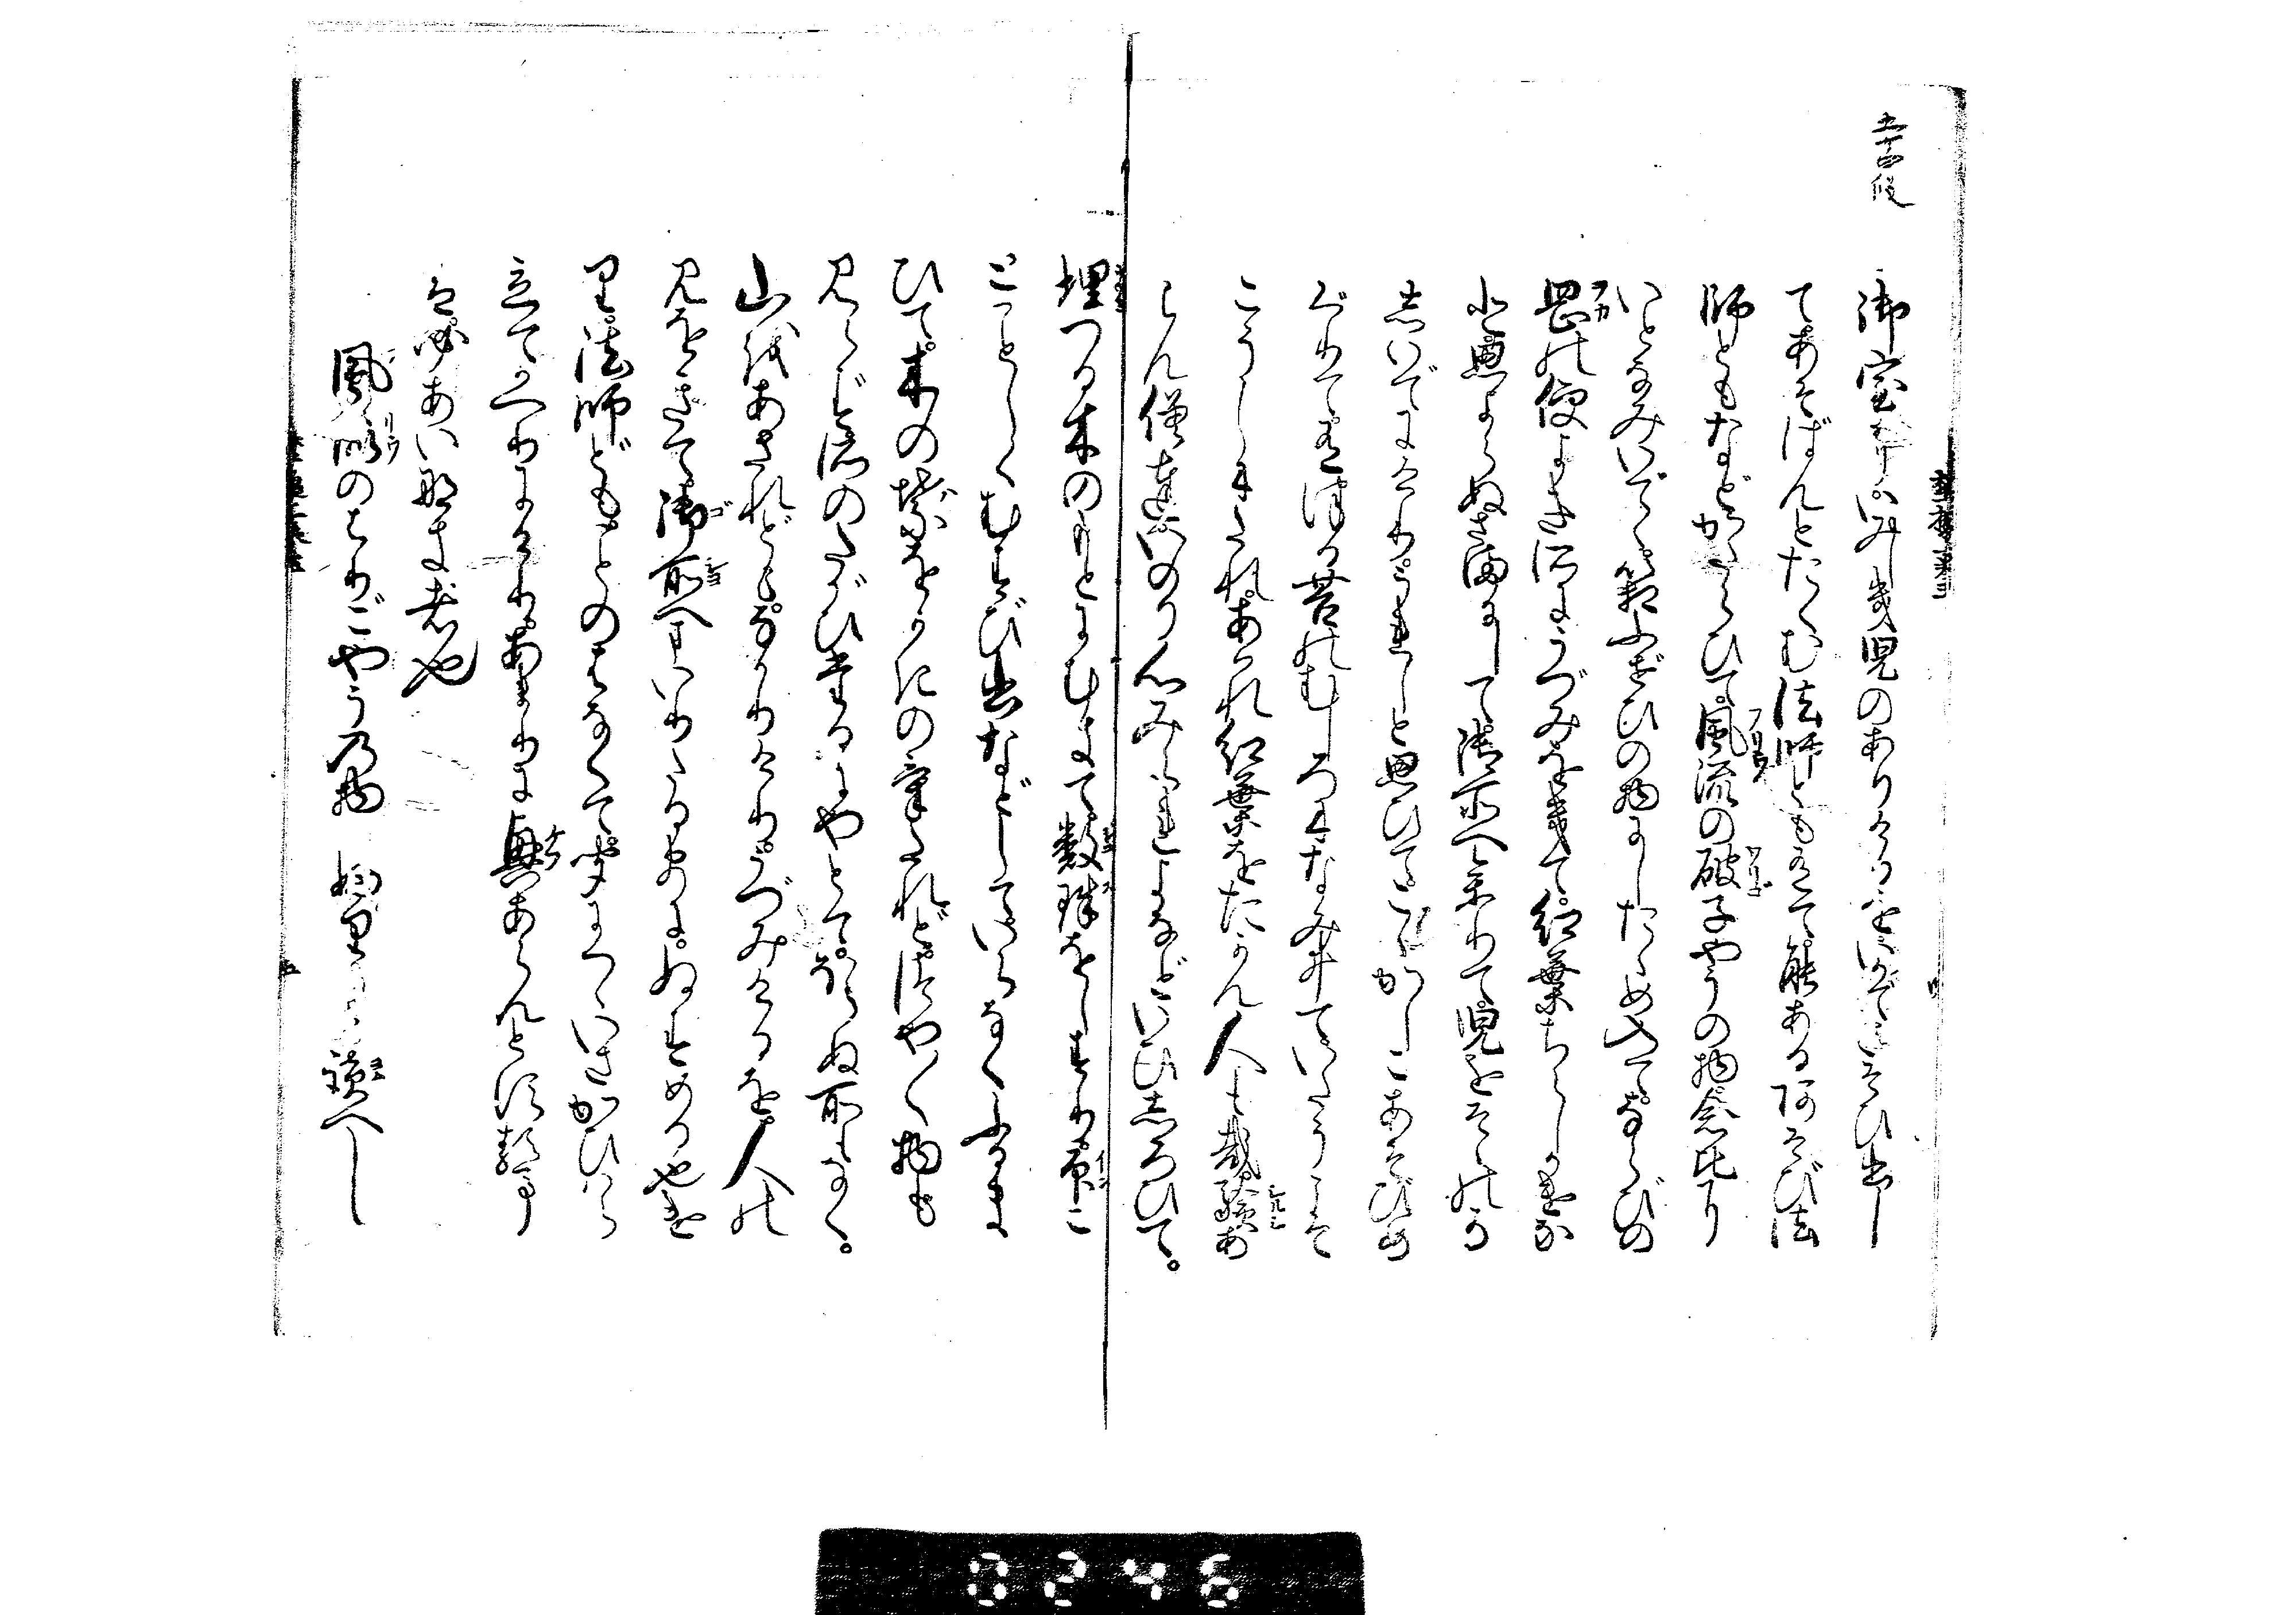 五十四段
御室にいみしき児のありけるをいかでさそひ出し
てあそばんとたくむ法師ともありて。能あるあそび法
師ともなどかたらひて。風流の破子やうの物念比に
いとなみいでゝ。箱ふぜひの物にしたゝめ入て。ならびの
岡の便よき所にうづみをきて。紅葉ちらしかけなど
思よらぬさまにして御所へ参りて児をそゝのか
しいでにけり。うれしと思ひてこゝかしこあそびめ
ぐりて有つる苔のむしろになみゐて。いたうこそ
こうじにたれ。あはれ紅葉をたかん人も哉。験あ
らん僧達いのり心みられよなどいひしろひて。
埋つる木のもとにむきて数珠をしすり。印こ
と〳〵しくむすび出などして。いらなくふるま
ひて。木の葉をかきのけたれど。つや〳〵物も
見えず。所のたがひたるにやとて。ほらぬ所もなく。
山をあされどもなかりけり。うづみけるを。人の
見をきて御所へまいりたるまに。ぬすめる也け
り。法師どもことのはなくて。聞にくゝいさかひはら
立てかへりにけり。あまりに興あらんとする事
は必あいなき者也
風流のはりごやうの物